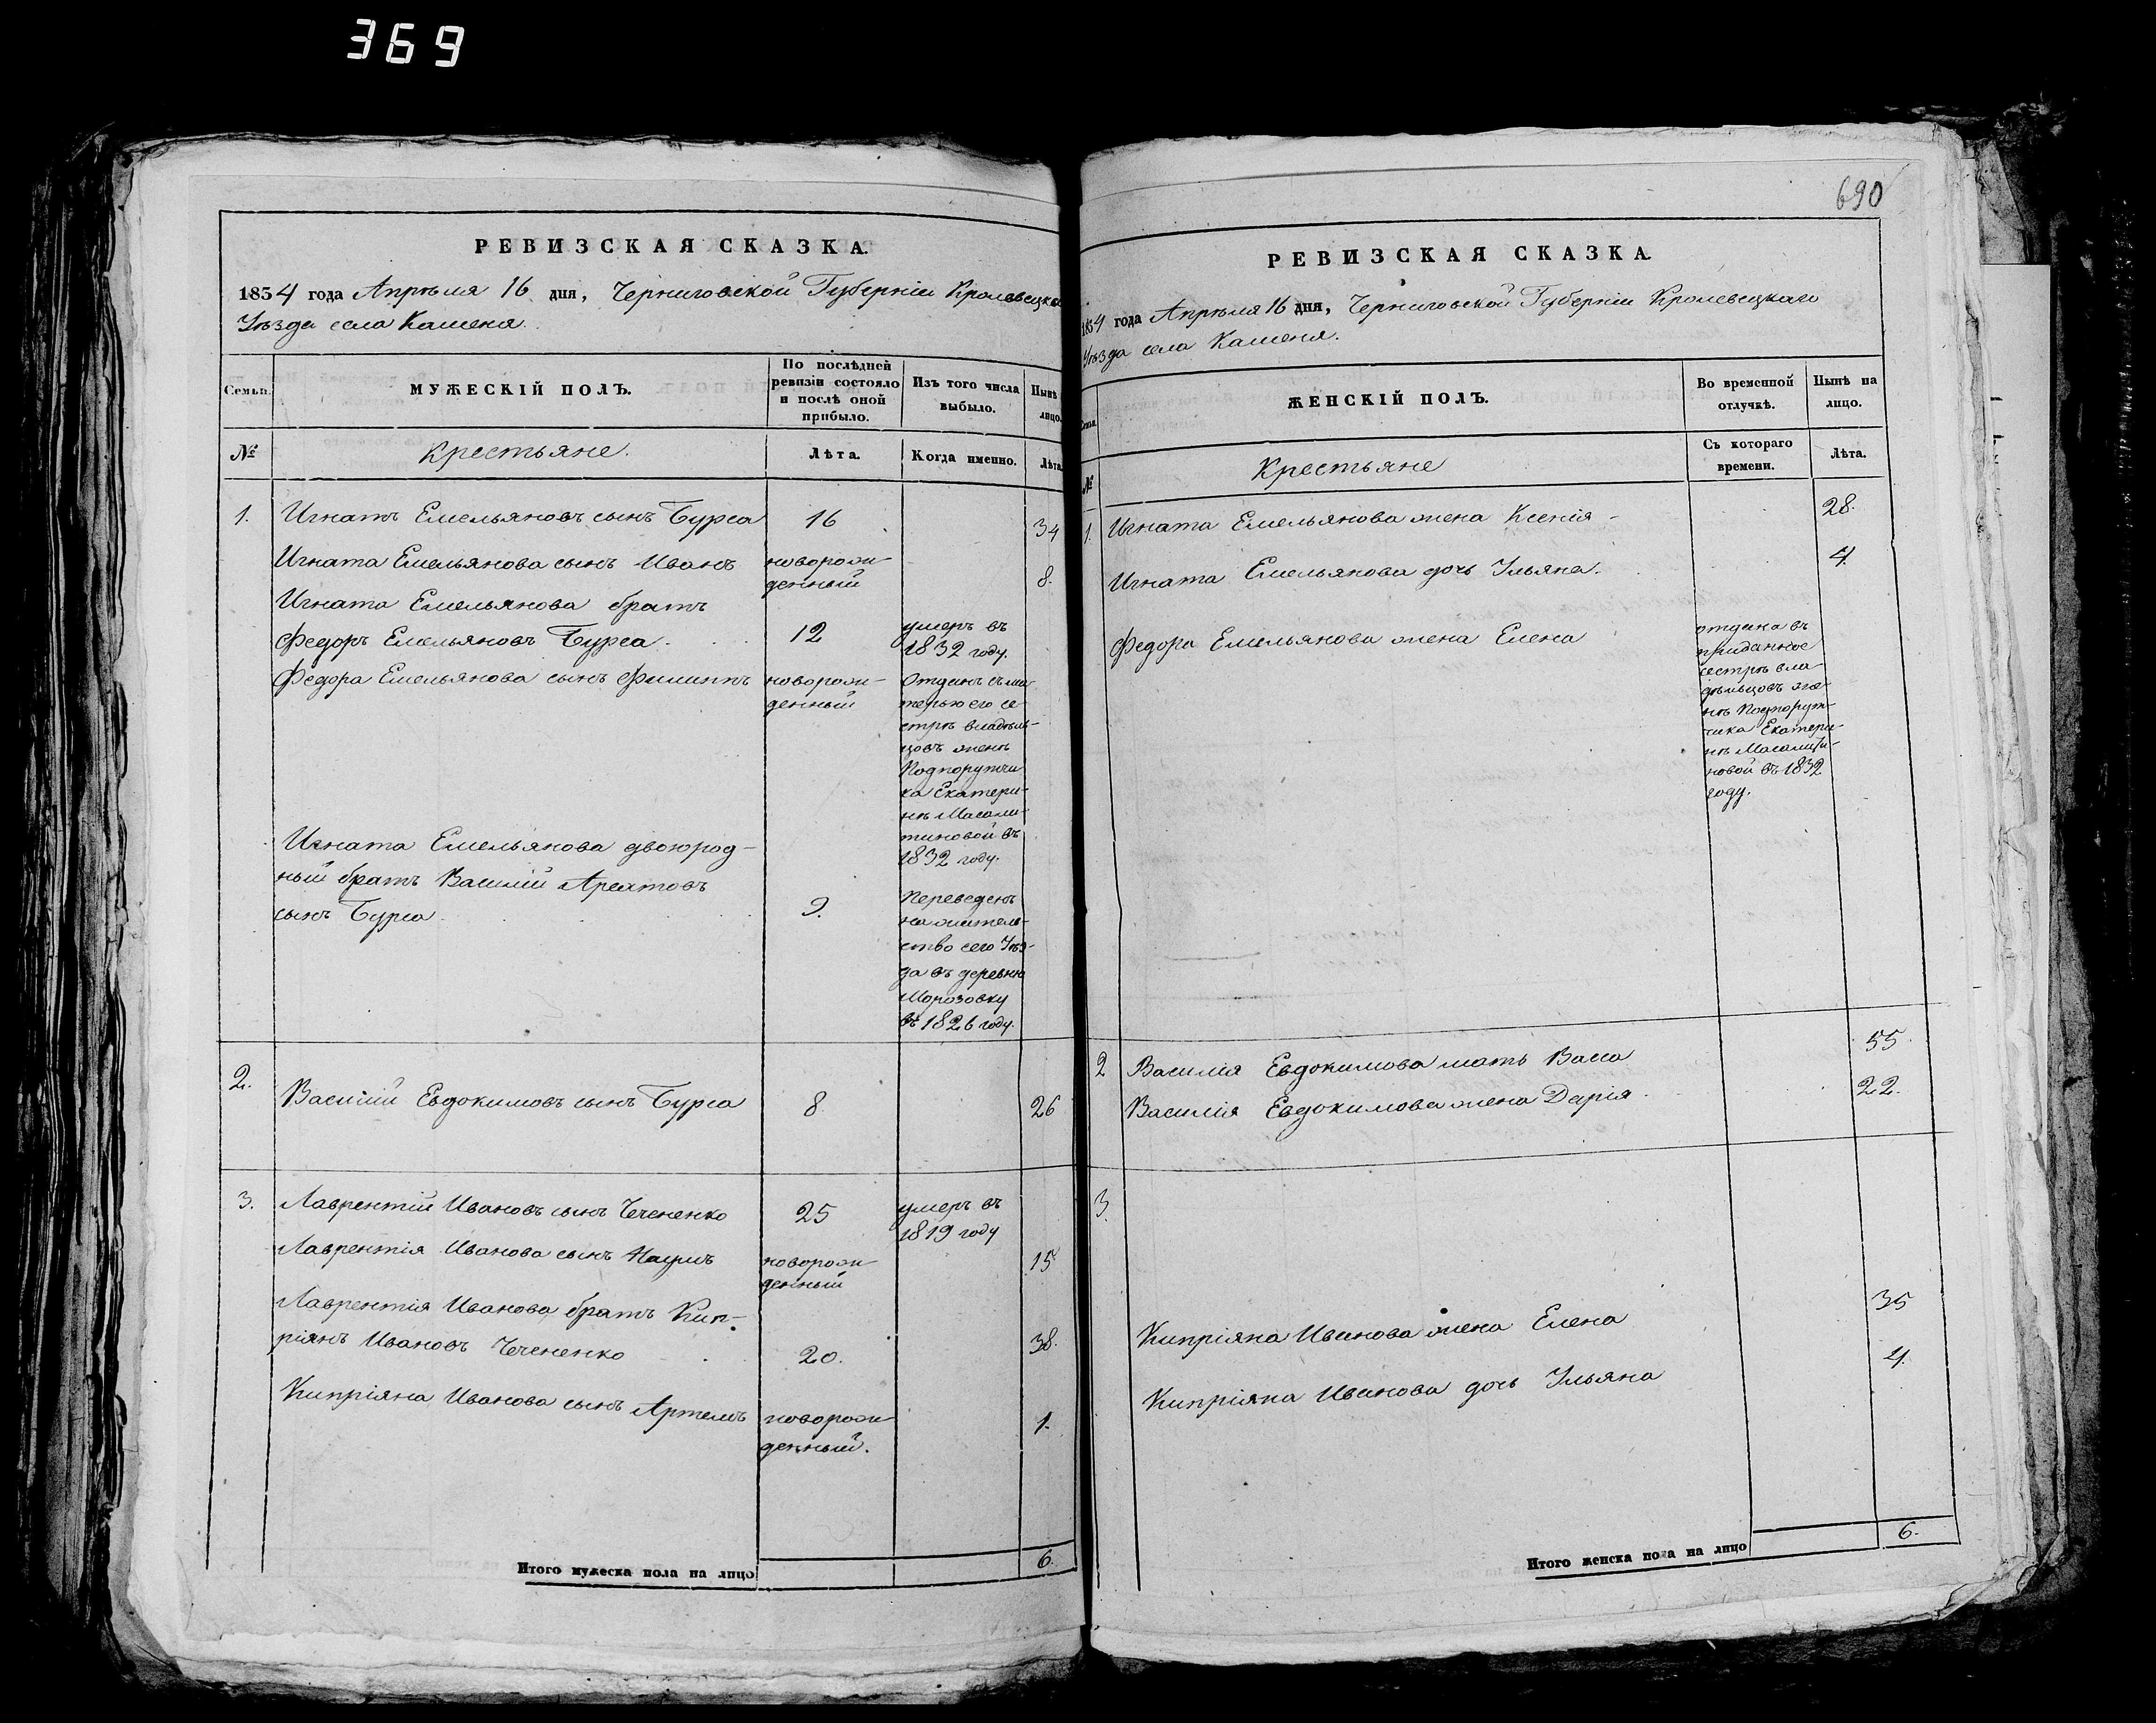 369
690
РЕВИЗСКАЯ СКАЗКА.
1834 года Апрѣля 16 дня, Черниговской Губерніи Кролевецкаго
Уѣзда села Каменя.
Семьи.
МУЖЕСКІЙ ПОЛЪ.
По послѣдней
ревизіи состояло
и послѣ оной
прибыло.
Изъ того числа
выбыло.
Нынѣ
лицо.
№
Крестьяне.
Лѣта.
Когда именно.
Лѣта.
1.
Игнатъ Емельяновъ сынъ Бурса
16
34
Игната Емельянова сынъ Иванъ
новорож-
денный
8.
Игната Емельянова братъ
Федоръ Емельяновъ Бурса.
12
умеръ въ
1832 году.
Федора Емельянова сынъ Филиппъ
новорож-
денный
Отданъ съ ма-
терью его се-
стрѣ владѣль-
цовъ женѣ
Подпоручи
ка Екатери-
нѣ Масали-
тиновой въ
1832 году.
Игната Емельянова двоюрод-
ный братъ Василій
сынъ Бурса
9.
Переведенъ
на житель-
ство сего Уѣз-
да въ деревню
Морозовку
въ 1826 году.
2.
Василій Евдокимовъ сынъ Бурса
8.
26
3.
Лаврентій Ивановъ сынъ Чечененко
25
умеръ въ
1819 году
Лаврентія Иванова сынъ Наумъ
новорож-
денный
15
Лаврентія Иванова братъ Кип-
ріянъ Ивановъ Чечененко
20.
38.
Кипріяна Иванова сынъ Артемъ
новорож-
денный.
1.
Итого мужеска пола на лицо
6.
РЕВИЗСКАЯ СКАЗКА.
1834 года Апрѣля 16 дня, Черниговской Губерніи Кролевецкаго
Уѣзда села Каменя.
Семьи.
ЖЕНСКІЙ ПОЛЪ.
Во временной
отлучкѣ.
Нынѣ на
лицо.
№
Крестьяне
Съ котораго
времени.
Лѣта.
1.
Игната Емельянова жена Ксенія
28.
Игната Емельянова дочь Ульяна.
4.
Федора Емельянова жена Елена
отдана въ
приданное
сестрѣ вла-
дѣльцовъ же-
нѣ Подпоруч-
чика Екатери-
нѣ Масалити-
новой въ 1832
году.
2
Василія Евдокимова мать Васса
55.
Василія Евдокимова жена Дарія
22.
3
Кипріяна Иванова жена Елена
35
Кипріяна Иванова дочь Ульяна
4.
Итого женска пола на лицо
6.